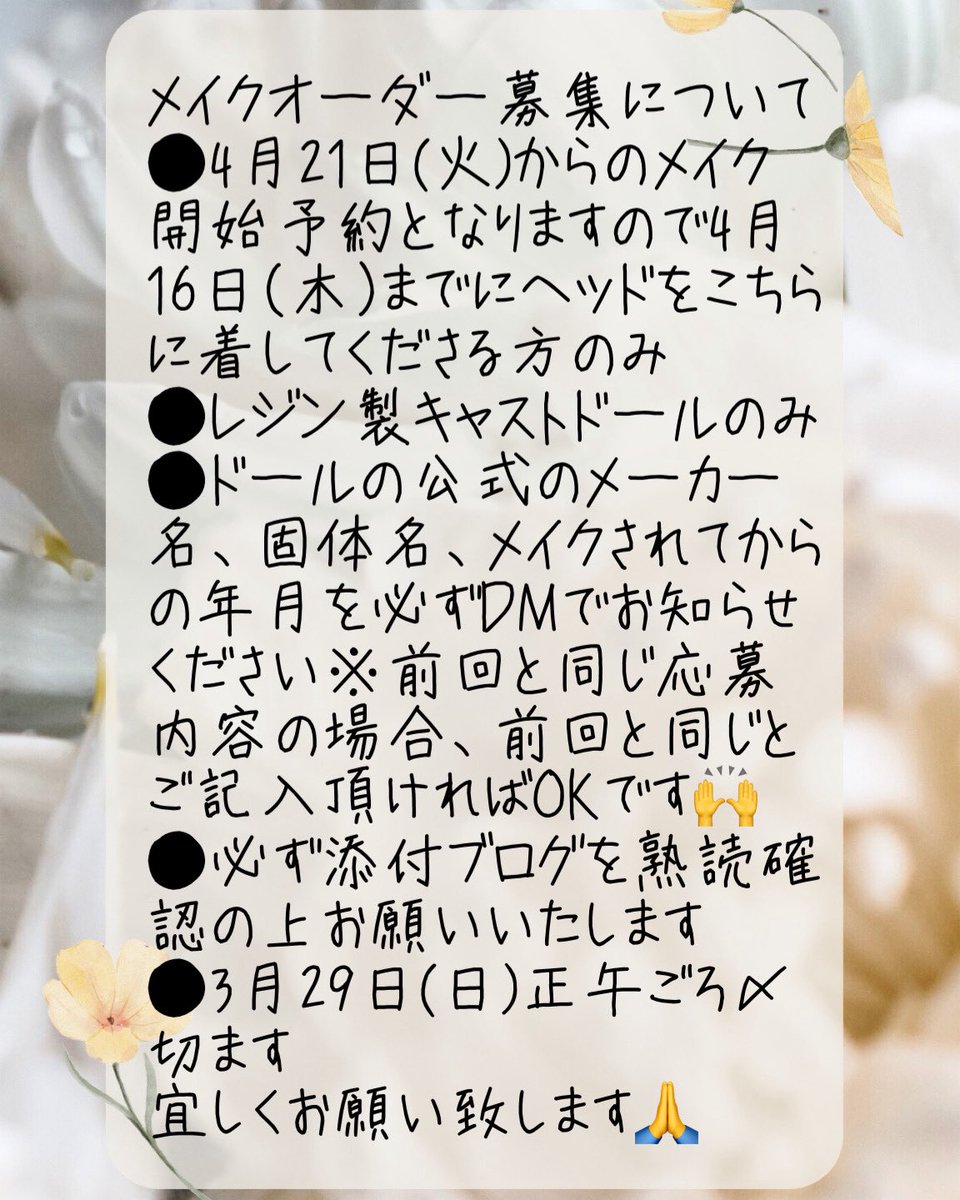 メイクオーダー募集について
●4月21日(火)からのメイク
開始予約となりますので4月
16日(木)までにヘッドをこちら
に着してくださる方のみ
●レジン製キャストドールのみ
●ドールの公式のメーカー
名、固体名、メイクされてから
の年月を必ずDMでお知らせ
ください※前回と同じ応募
内容の場合、前回と同じと
ご記入頂ければOKです🙌
●必ず添付ブログを熟読確
認の上お願いいたします
●3月29日(日)正午ごろ〆
切ます
宜しくお願い致します🙏